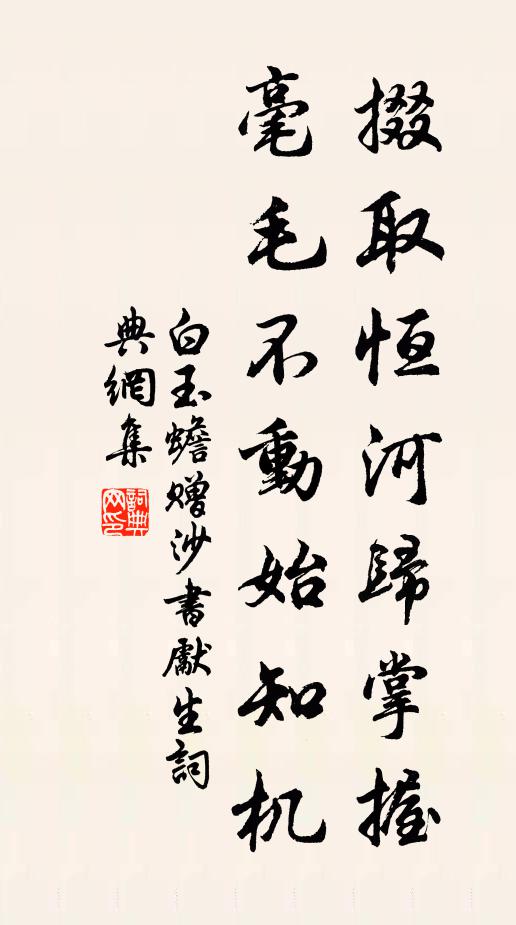 掇取恒河歸掌握
毫毛不動始知机
白玉蟾贈沙書獻生詞
典網集
詞典网印